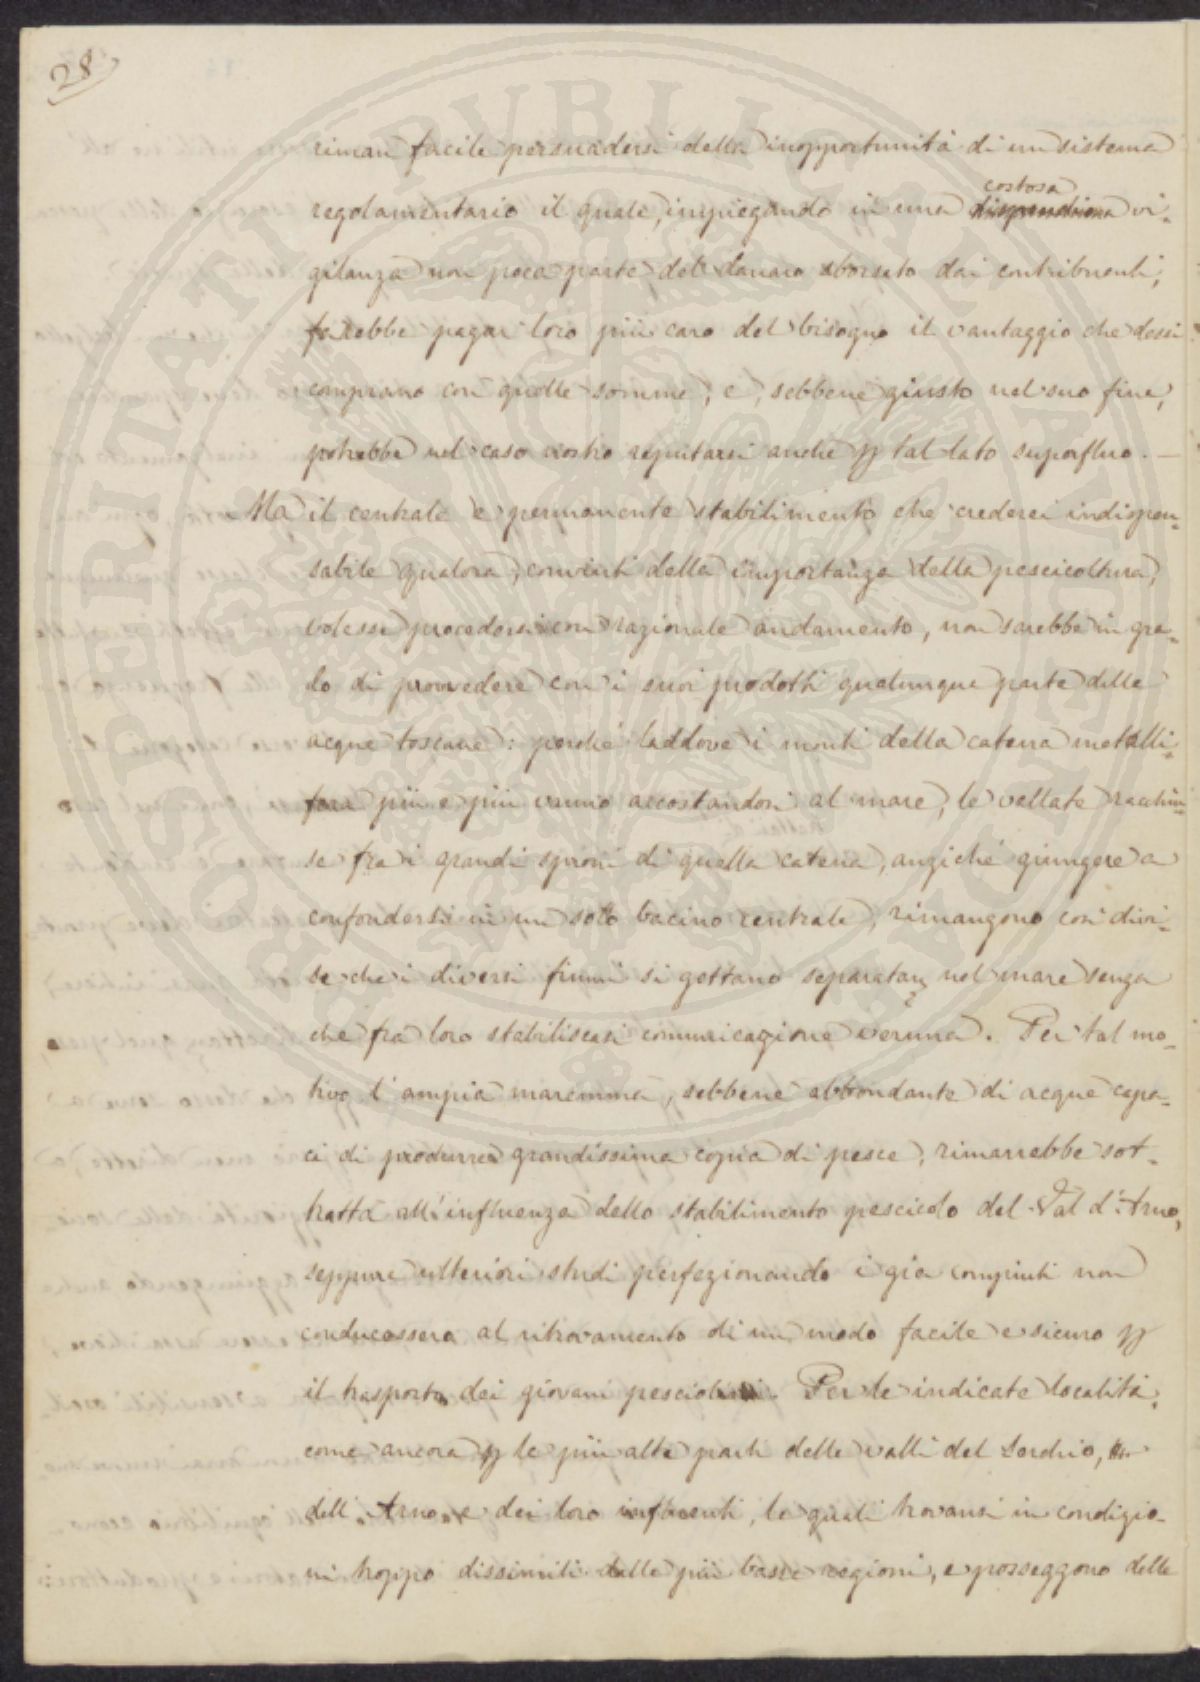 28
riman facile persuadersi della inopportunità di un sistema
costosa
regolamentario il quale, impiegando in una dispendiosa vi-
gilanza non poca parte del danaro sborsato dai contribuenti,
farebbe pagar loro più caro del bisogno il vantaggio che dessi
comprano con quelle somme; e, sebbene giusto nel suo fine,
potrebbe nel caso nostro reputarsi anche p tal lato superfluo. —
Ma il centrale e permanente stabilimento che crederei indispen-
sabile qualora, convinti della importanza della pescicoltura,
volesse procedersi con razionale andamento, non sarebbe in gra-
do di provvedere con i suoi prodotti qualunque parte delle
acque toscane: perchè laddove i monti della catena metalli-
fera più e più vanno accostandosi al mare, le vallate racchiu-
se fra i grandi sproni di quella catena, anzichè giungere a
confondersi in un solo bacino centrale, rimangono così divi-
se che i diversi fiumi si gettano separatam nel mare senza
che fra loro stabiliscasi comunicazione veruna. Per tal mo-
tivo l'ampia maremma, sebbene abbondante di acque capa-
ci di produrre grandissima copia di pesce, rimarrebbe sot-
tratta all'influenza dello stabilimento pescicolo del Val d'Arno,
seppure ulteriori studi perfezionando i già compiuti non
conducessero al ritrovamento di un modo facile e sicuro p
il trasporto dei giovani pesciolini. Per le indicate località,
come ancora p le più alte parti delle valli del Serchio,
dell'Arno e dei loro influenti, le quali trovansi in condizio-
ni troppo dissimili dalle più basse regioni, e posseggono delle
PROSPERITATI PVBLICAE AVGENDAE